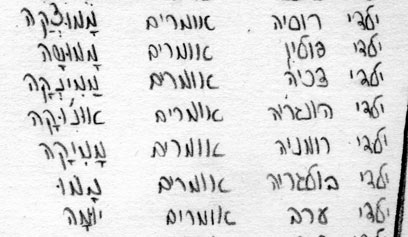 ילדי רוסיה אומרים מָמוּצְ'קָה
ילדי פולין אומרים מָמוּשָׁה
ילדי צכיה אומרים מַמִינְקָה
ילדי הונגריה אומרים
ילדי רומניה אומרים מָמִיקָה
ילדי בולגריה אומרים מָמוֹ
ילדי ערב אומרים יוּמָה